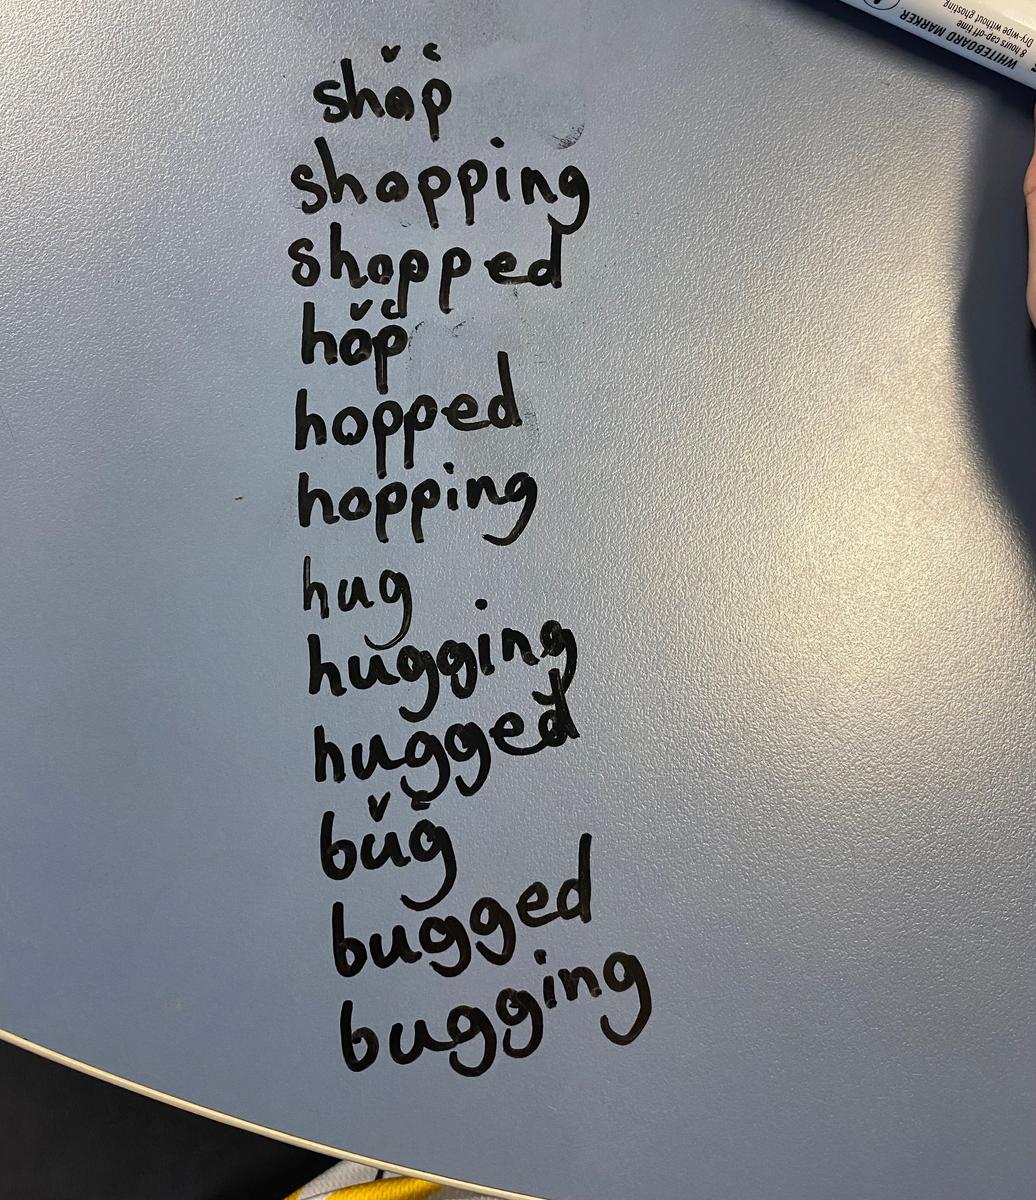 WHITEBOARD MARKER
8 hours cap-off time
Dry-wipe without ghosting
v c
shop
shopping
shopped
v c
hop
hopped
hopping
hug
hugging
hugged
v c
bug
bugged
bugging